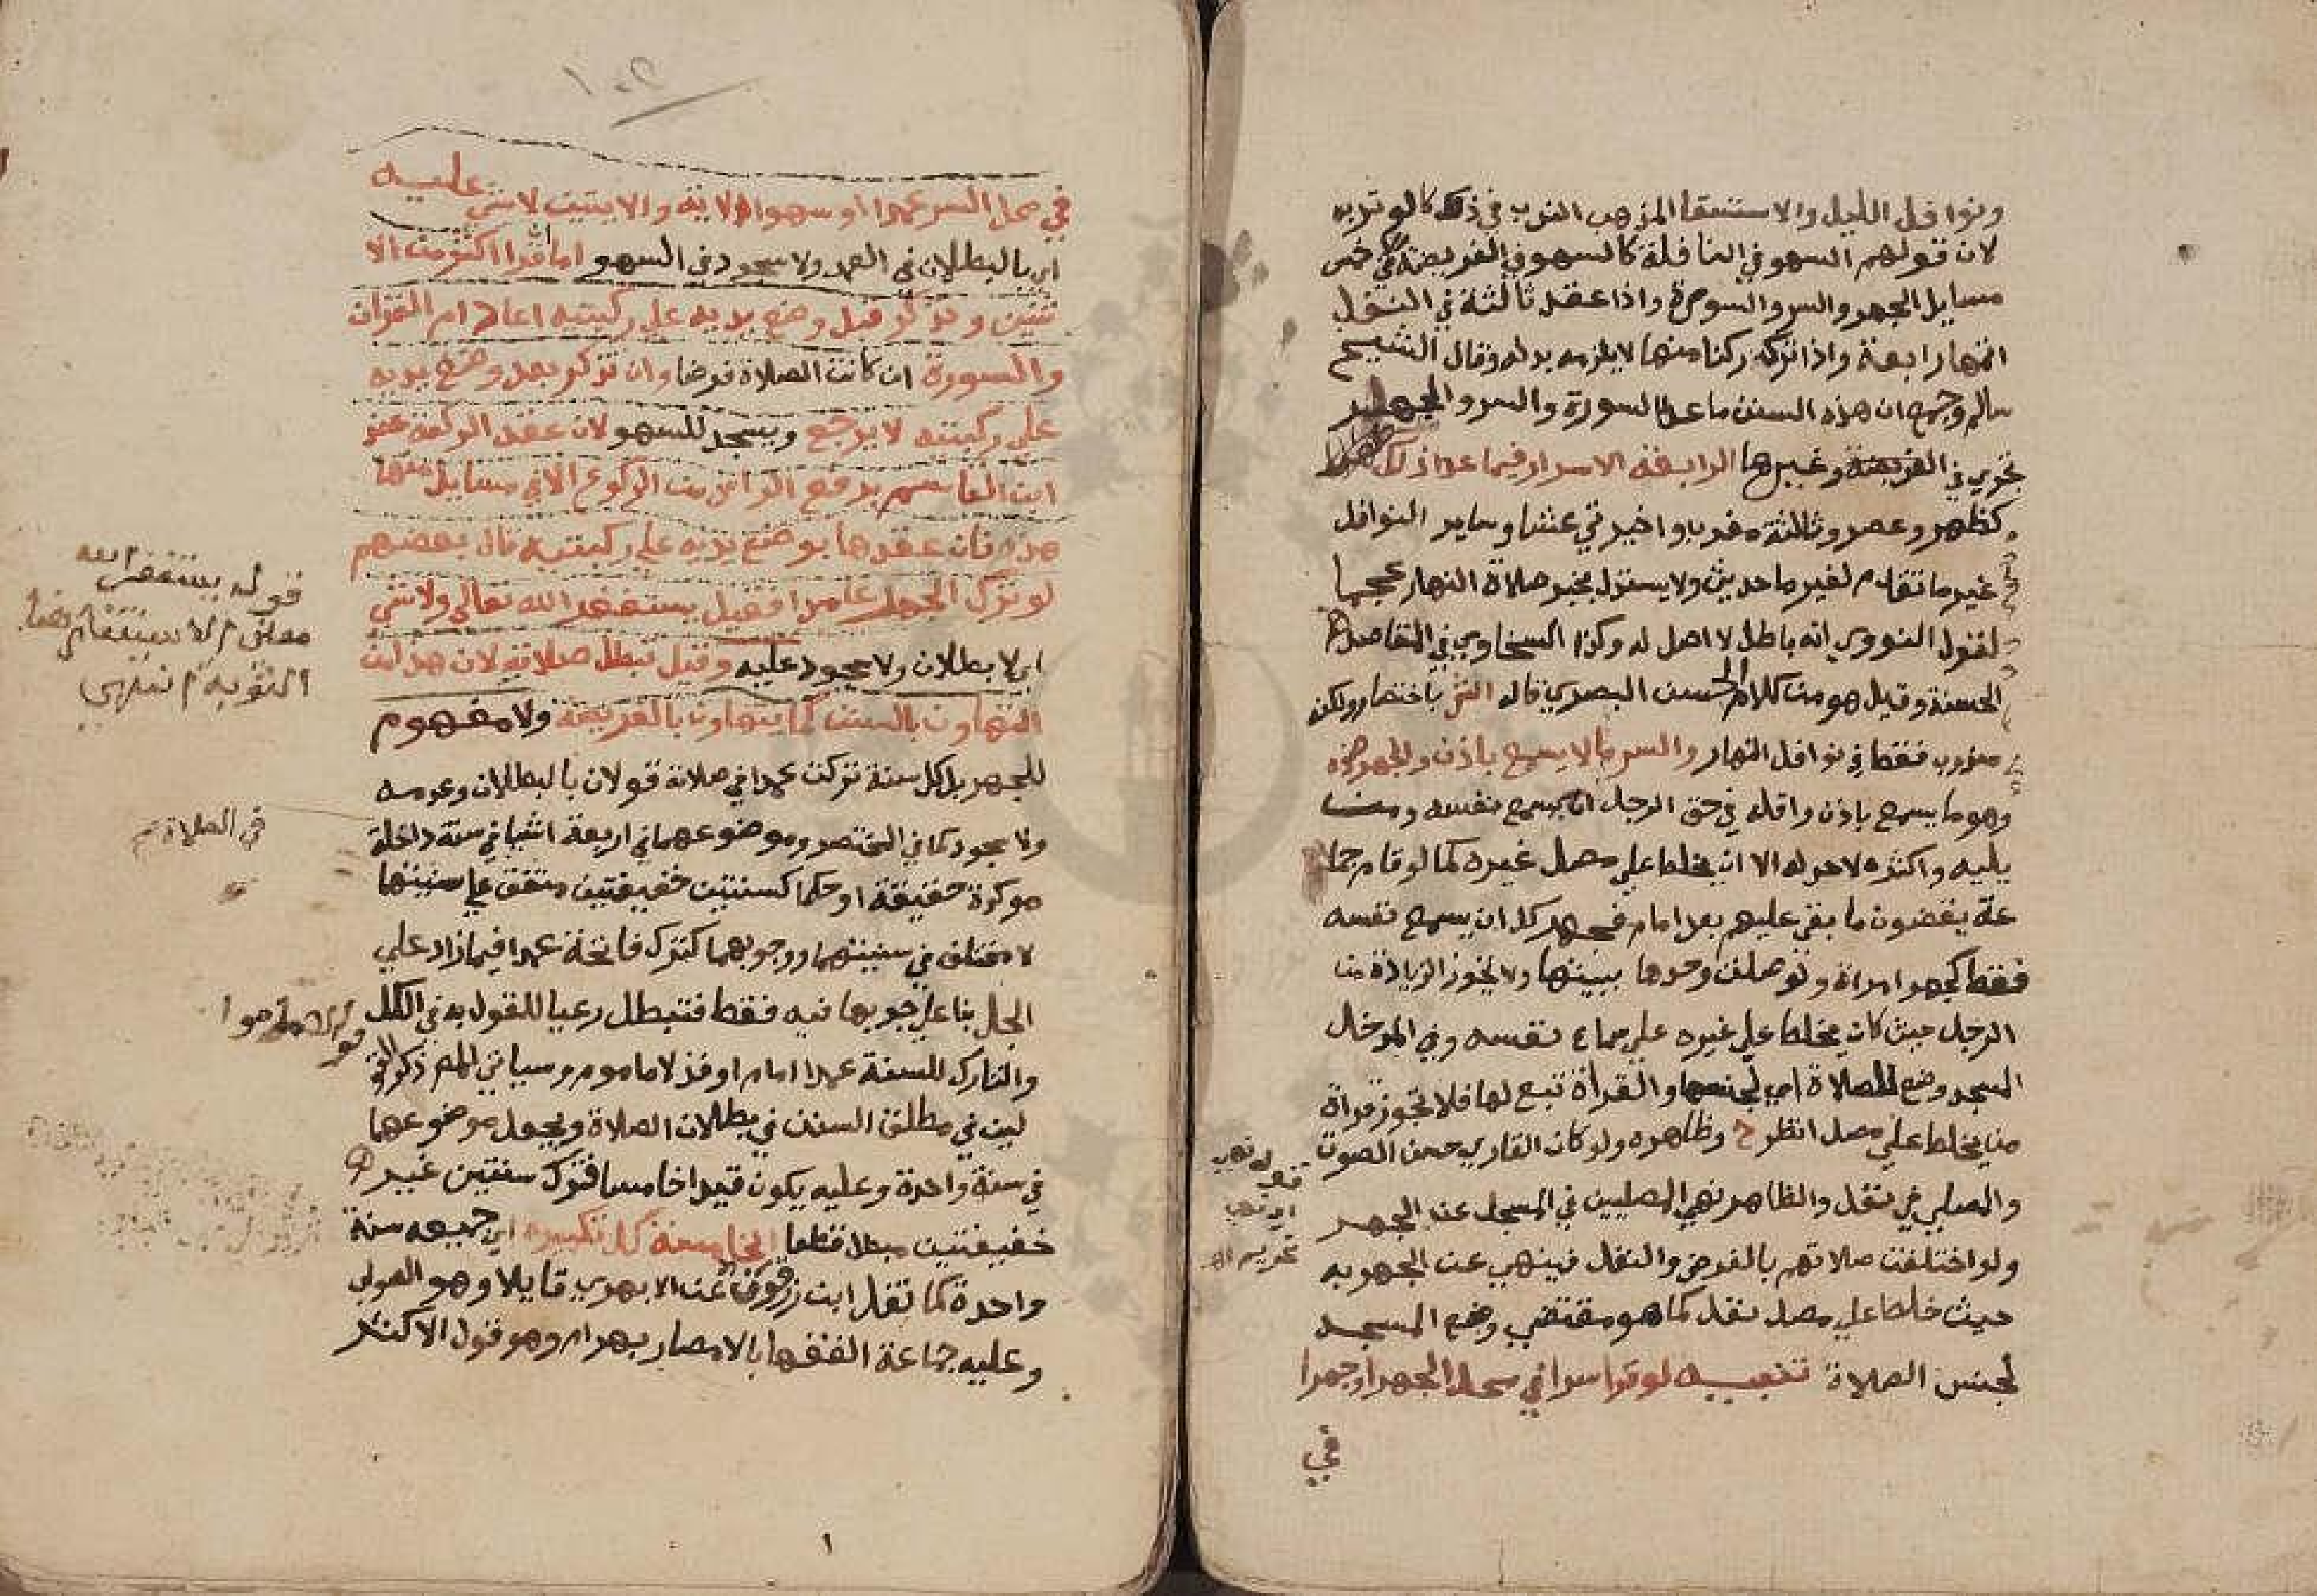 ونوافل الليل والاستسقا المذهب الندب في ذلك كالوتر به
لان قولهم السهو في النافلة كالسهو في الفريضة في خمس
مسايل الجهر والسر والسورة واذا عقد ثالثة في النفل
اتمها رابعة واذا ترك ركنا منها لا يلزمه بدله وقال الشيخ
سالم وجمع ان هذه السنن ما عدا السورة والسر والجهر
تجري في الفريضة وغيرها الرابعة الاسرار فيما عدا ذلك
كظهر وعصر وثالثة مغرب واخيرتي عشا وساير النوافل
غير ما تقدم لغير ما حديث ولا يستدل بخبر صلاة النهار عجما
لقول النووي انه باطل لا اصل له وكذا السخاوي في المقاصد
الحسنة وقيل هو من كلام الحسن البصري قاله التتا باختصار ولكن
مندوب فقط في نوافل النهار والسر ما لا يسمع باذن والجهر ضده
وهو ما يسمع باذن واقله في حق الرجل ان يسمع نفسه ومن
يليه واكثره لا حد له الا ان يخلط علي مصل غيره كما لو قام جما
عة يقضون ما بقي عليهم بعد امام فجهر كل ان يسمع نفسه
فقط كجهر امراة ولو صلت وحدها ببيتها ولا يجوز الزيادة من
الرجل حيث كان يخلط علي غيره علي سماع نفسه وفي المدخل
المسجد وضع للصلاة اي لجنسها والقراة تبع لها فلا تجوز قراة
من يخلط علي مصل انظر ح وظاهره ولو كان القاري حسن الصوت
والمصلي في نفل والظاهر نهي المصليين في المسجد عن الجهر
ولو اختلفت صلاتهم بالفرض والنفل فينهي عن الجهر به
حيث خلط علي مصل نفل كما هو مقتضي وضع المسجد
لجنس الصلاة تنبيه لو قرا سرا في محل الجهر او جهرا
في
قوله نهي
اي نهي
تحريم اه
١٠٢
في محل السر عمدا او سهوا الاية والايتين لا شي عليه
اي بالبطلان في العمد ولا سجود في السهو اما ان قرا اكثر من الا
يتين وتذكر قبل وضع يديه علي ركبتيه اعاد ام القران
والسورة ان كانت الصلاة فرضا وان تذكر بعد وضع يديه
علي ركبتيه لا يرجع ويسجد للسهو لان عقد الركعة عند
ابن القاسم برفع الراس من الركوع الا في مسايل منها
هذه فان عقدها بوضع يديه علي ركبتيه قال بعضهم
لو ترك الجهر عامدا فقيل يستغفر الله تعالي ولا شي
اي لا بطلان ولا سجود عليه وقيل تبطل صلاته لان هذا من
التهاون بالسنن كما يتهاون بالفريضة ولا مفهوم
للجهر بل كل سنة تركت عمدا في صلاة قولان بالبطلان وعدمه
ولا سجود كما في المختصر وموضوعهما في اربعة اشيا في سنة داخلة
موكدة حقيقة او حكما كسنتين خفيفتين متفق علي سنيتها
لا مختلف في سنيتهما ووجوبهما كترك فاتحة عمدا فيما زاد علي
الجل بنا علي وجوبها فيه فقط فتبطل رعيا للقول به في الكل
والتارك للسنة عمدا امام او فذ لا ماموم وسياتي للمص ذكر القو
لين في مطلق السنن في بطلان الصلاة ويجعل موضوعهما
في سنة واحدة وعليه يكون قيدا خامسا فترك سنتين غير
خفيفتين مبطل قطعا الخامسة كل تكبيره اي جميعه سنة
واحدة كما نقل ابن زرقون عن الابهري قايلا وهو الصواب
وعليه جماعة الفقها بالامصار بهرام وهو قول الاكثر
قوله يستغفر الله
التوبة انتهي
في الصلاة